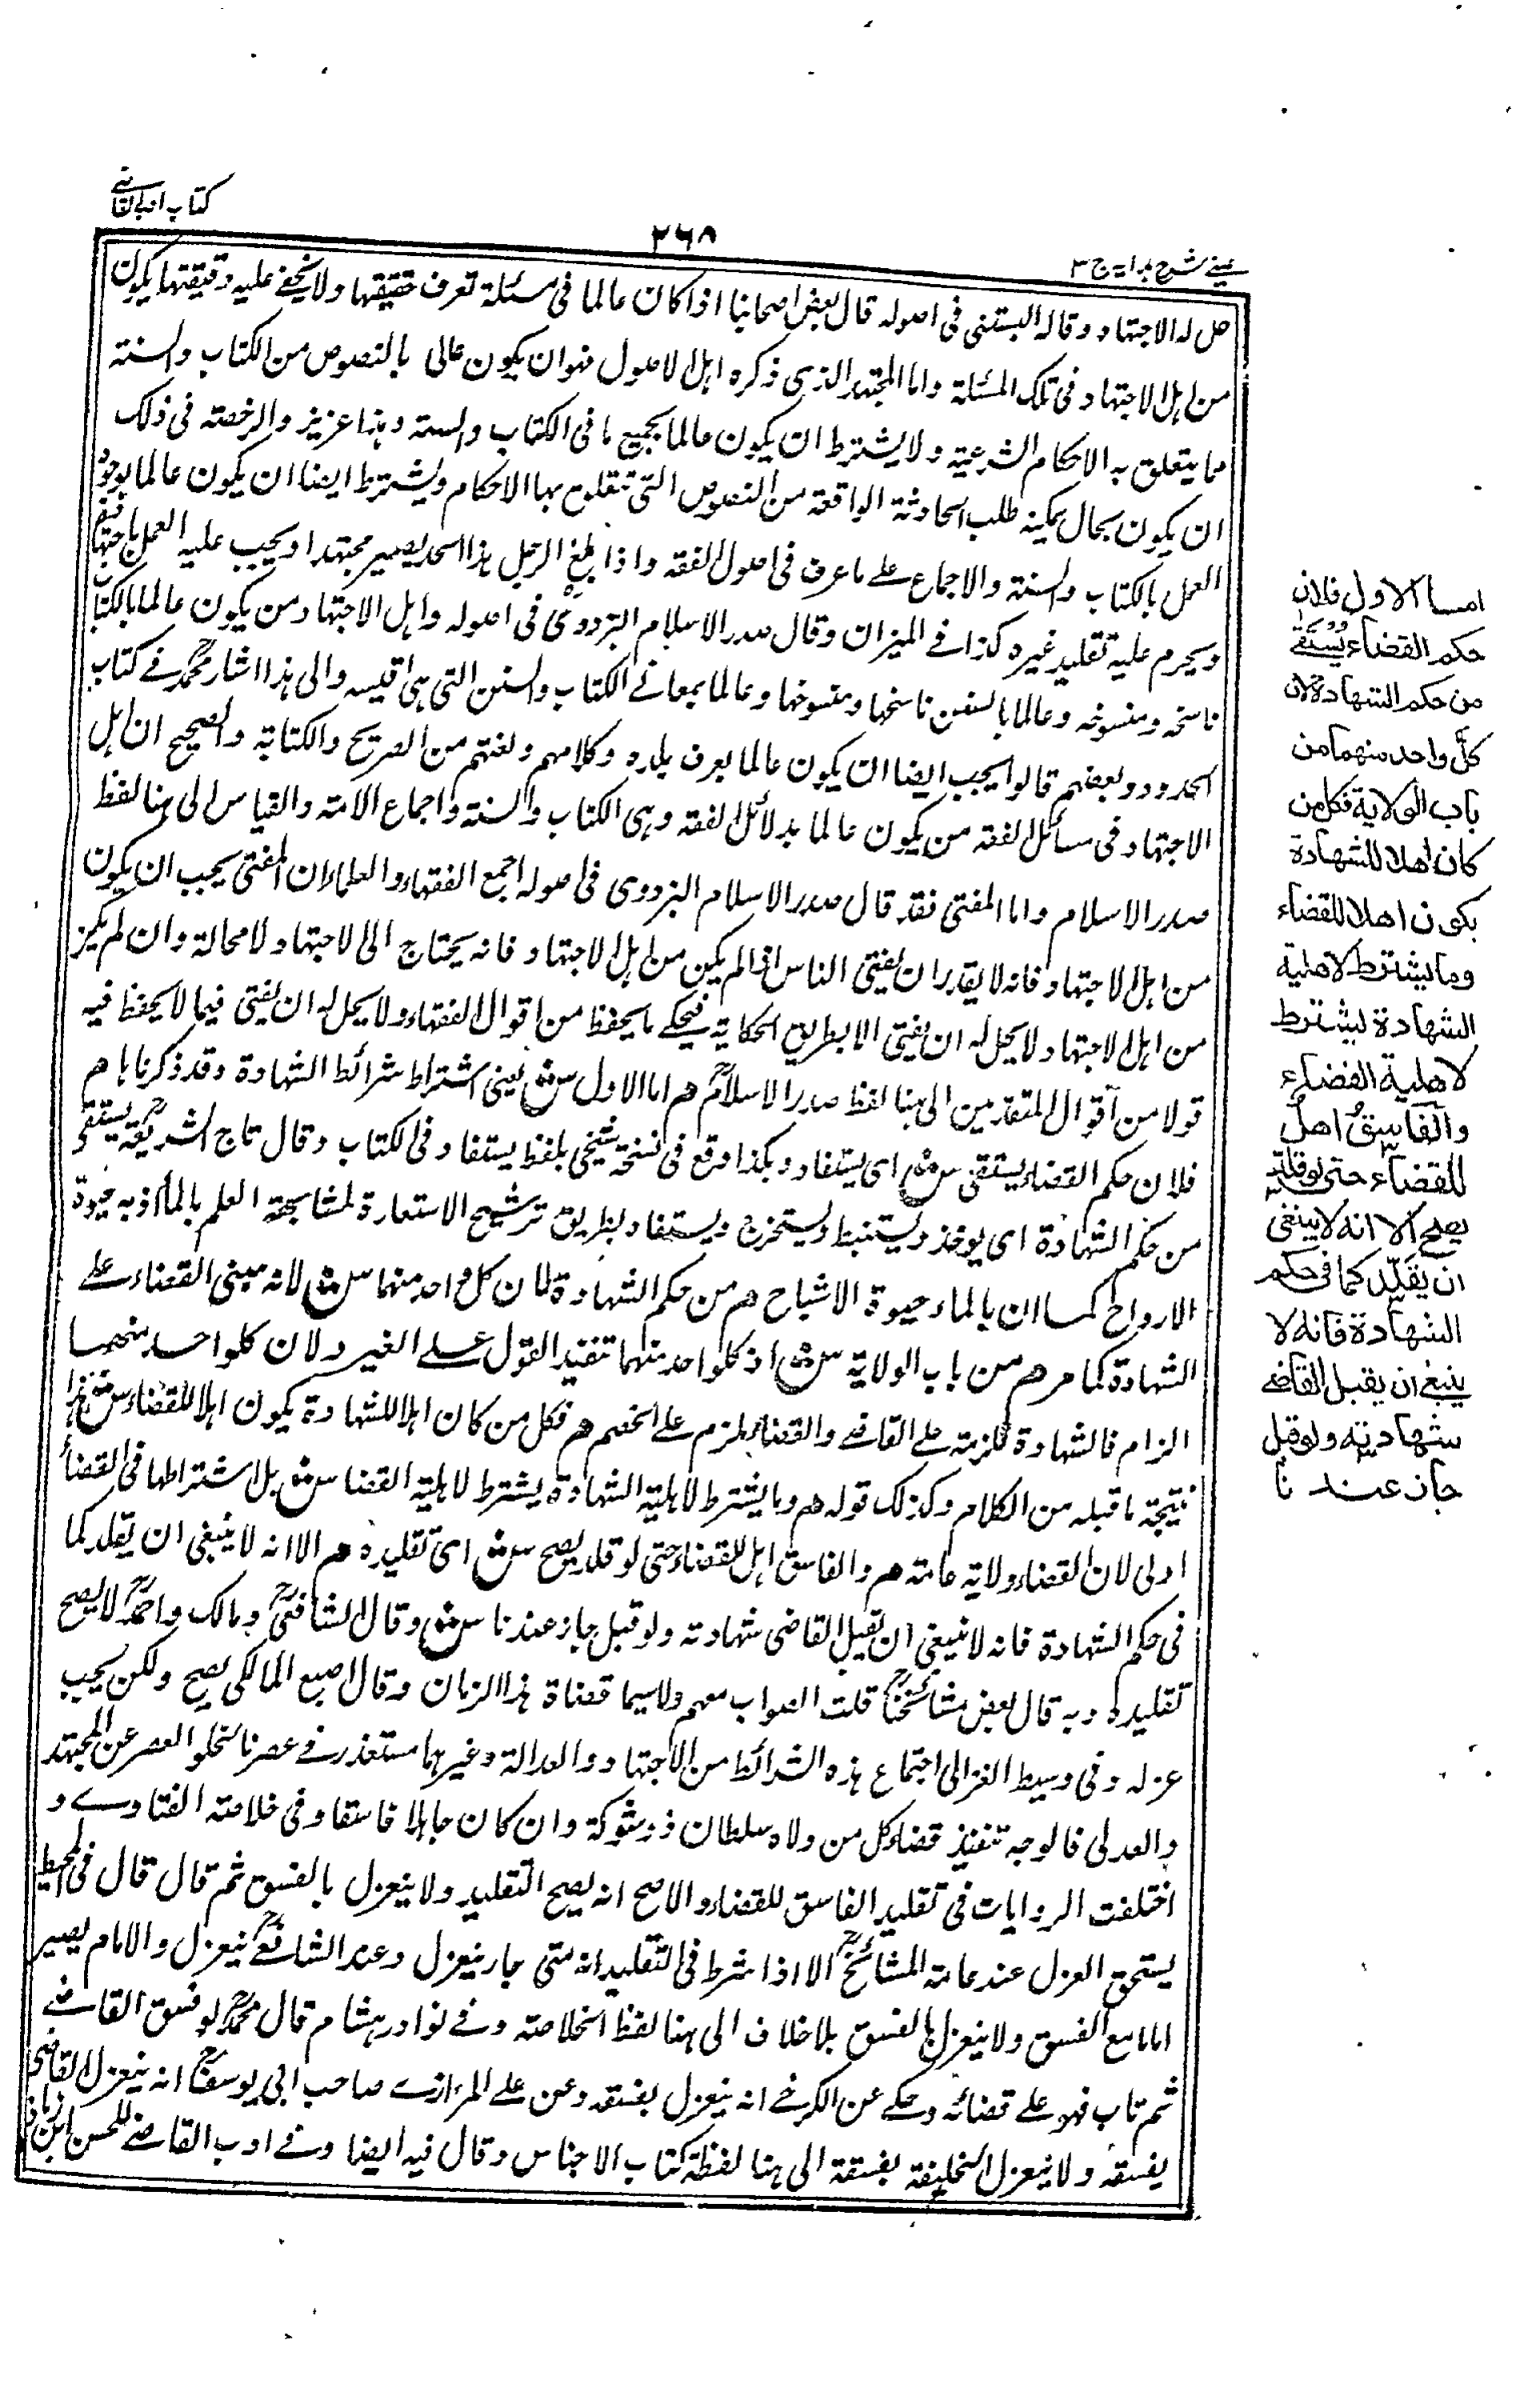 كتاب ادب القاضے
٢٦٨
عينے شرح ہدايہ ج ٣
حل له الاجتهاد وقال البستى فى اصوله قال بعض اصحابنا اذا كان عالما فى مسئلة تعرف حقيقتها ولا يخفے عليه دقيقتها يكون
من اہل الاجتهاد فى تلك المسئلة واما المجتهد الذى ذكره اہل الاصول فهو ان يكون عالى بالنصوص من الكتاب والسنة
مما يتعلق به الاحكام الشرعية ولا يشترط ان يكون عالما بجميع ما فى الكتاب والسنة وہذا عزيز والرخصة فى ذلك
ان يكون بحال يمكنه طلب الحادثة الواقعة من النصوص التى تتعلق بها الاحكام ويشترط ايضا ان يكون عالما بوجوه
العمل بالكتاب والسنة والاجماع علے ما عرف فى اصول الفقه واذا بلغ الرجل ہذا الحد يصير مجتهدا ويجب عليه العمل باجتهاده
ويحرم عليه تقليد غيره كذا فے الميزان وقال صدر الاسلام البزدوىؒ فى اصوله واہل الاجتهاد من يكون عالما بالكتاب
ناسخه ومنسوخه وعالما بالسنن ناسخها ومنسوخها وعالما بمعانے الكتاب والسنن التى ہى اقيسه والى ہذا اشار محمدؒ فے كتاب
الحدود وبعضهم قالوا يجب ايضا ان يكون عالما بعرف بلده وكلامهم ولغتهم من الصريح والكناية والصحيح ان اہل
الاجتهاد فى مسائل الفقه من يكون عالما بدلائل الفقه وہى الكتاب والسنة واجماع الامة والقياس الى ہنا لفظ
صدر الاسلام واما المفتى فقد قال صدر الاسلام البزدوى فى اصوله اجمع الفقهاء والعلماء ان المفتى يجب ان يكون
من اہل الاجتهاد فانه لا يقدر ان يفتى الناس اذا لم يكن من اہل الاجتهاد فانه يحتاج الى الاجتهاد لا محالة وان لم يكن
من اہل الاجتهاد لا يحل له ان يفتى الا بطريق الحكاية فيحكے ما يحفظ من اقوال الفقهاء ولا يحل له ان يفتى فيما لا يحفظ فيه
قولا من اقوال المتقدمين الى ہنا لفظ صدر الاسلامؒ ھم اما الاول ش يعنى اشتراط شرائط الشهادة وقد ذكرناہا ھم
فلان حكم القضاء يستقى ش اى يستفاد وہكذا وقع فى نسخة شيخى بلفظ يستفاد وفى الكتاب وقال تاج الشريعةؒ يستقى
من حكم الشهادة اى يوخذ ويستنبط ويستخرج ويستفاد بطريق ترشيح الاستعارة لمشابهة العلم بالماء اذ به حيوة
الارواح كما ان بالماء حيوة الاشباح ھم من حكم الشهادة لان كل واحد منهما ش لانه مبنى القضاء علے
الشهادة كما مر ھم من باب الولاية ش اذ كل واحد منهما تنفيذ القول علے الغير ولان كل واحد منهما
الزام فالشهادة ملزمة علے القاضے والقضاء ملزم على الخصم ھم فكل من كان اہلا للشهادة يكون اہلا للقضاء ش ہذا
نتيجة ما قبله من الكلام وكذلك قوله ھم وما يشترط لاہلية الشهادة يشترط لاہلية القضا ش بل اشتراطها فى القضاء
اولى لان القضاء ولاية عامة ھم والفاسق اہل للقضاء حتى لو قلد يصح ش اى تقليده ھم الا انه لا ينبغى ان يقلد كما
فى حكم الشهادة فانه لا ينبغى ان يقبل القاضى شهادته ولو قبل جاز عندنا ش وقال الشافعىؒ ومالك واحمدؒ لا يصح
تقليده وبه قال بعض مشائخناؒ قلت الصواب معهم ولاسيما قضاة ہذا الزمان وقال اصبع المالكى يصح ولكن يجب
عزله وفى وسيط الغزالى اجتماع ہذه الشرائط من الاجتهاد والعدالة وغيرہما مستعذر فے عصرنا لخلو العصر عن المجتهد
والعدل فالوجه تنفيذ قضاء كل من ولاه سلطان ذو شوكة وان كان جاہلا فاسقا وفى خلاصة الفتاوے و
اختلفت الروايات فى تقليد الفاسق للقضاء والاصح انه يصح التقليد ولا ينعزل بالفسق ثم قال قال فى المحيط
يستحق العزل عند عامة المشائخؒ الا اذا شرط فى التقليد انه متى جار ينعزل وعند الشافعىؒ ينعزل والامام يصير
اماما مع الفسق ولا ينعزل بالفسق بلا خلاف الى ہنا لفظ الخلاصة وفے نوادر ہشام قال محمدؒ لو فسق القاضے
ثم تاب فهو على قضائه وحكے عن الكرخے انه ينعزل بفسقه وعن على الرازے صاحب ابى يوسفؒ انه ينعزل القاضى
بفسقه ولا ينعزل الخليفة بفسقه الى ہنا لفظة كتاب الاجناس وقال فيه ايضا وفے ادب القاضے للحسن ابن زياد
امــا الاول فلان
حكم القضاء يُسْتَقٰے
من حكم الشهادة لان
كلّ واحد منهما من
باب الولاية فكل من
كان اهلا للشهادة
يكون اهلا للقضاء
وما يشترط لاهلية
الشهادة يشترط
لاهلية القضاء
والفاسقُ اهلٌ
للقضاء حتى لو قلّد
يصح الا انه لا ينبغى
ان يقلّد كما فى حكم
الشهادة فانه لا
ينبغى ان يقبل القاضے
شهادته ولو قبل
جاز عندنا